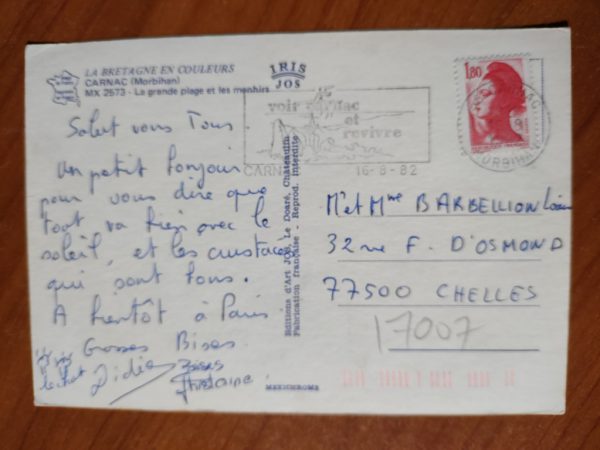 LA BRETAGNE EN COULEURS
CARNAC (Morbihan)
MX 2573 - La grande plage et les menhirs
IRIS
JOS
Salut vous Tous.
Un petit bonjour
pour vous dire que
tout va bien avec le
soleil, et les crustacés
qui sont bons.
A bientôt à Paris
Grosses Bises
Didier
Bises
Editions d'Art JOS, Le Doaré, Châteaulin
Fabrication française - Reprod. interdite
MEXICHROME
voir carnac
et
revivre
CARN
16-8-82
1,80
M et Mme BARBELLION
32 rue F. D'OSMOND
77500 CHELLES
17007